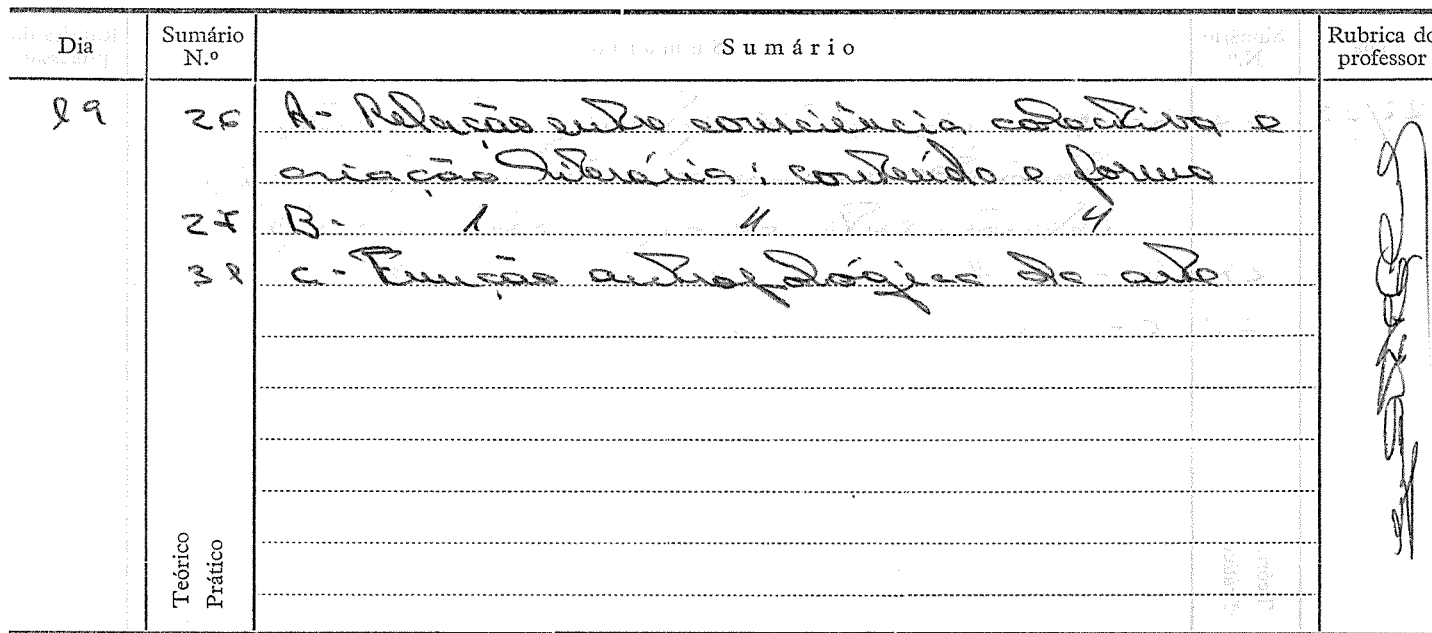 Dia Sumário N.º Sumário Rubrica do professor
19 26 A- Relação entre consciência colectiva e
criação literária: conteúdo e forma
27 B- " " "
31 C- Função antropológica da arte
Teórico
Prático